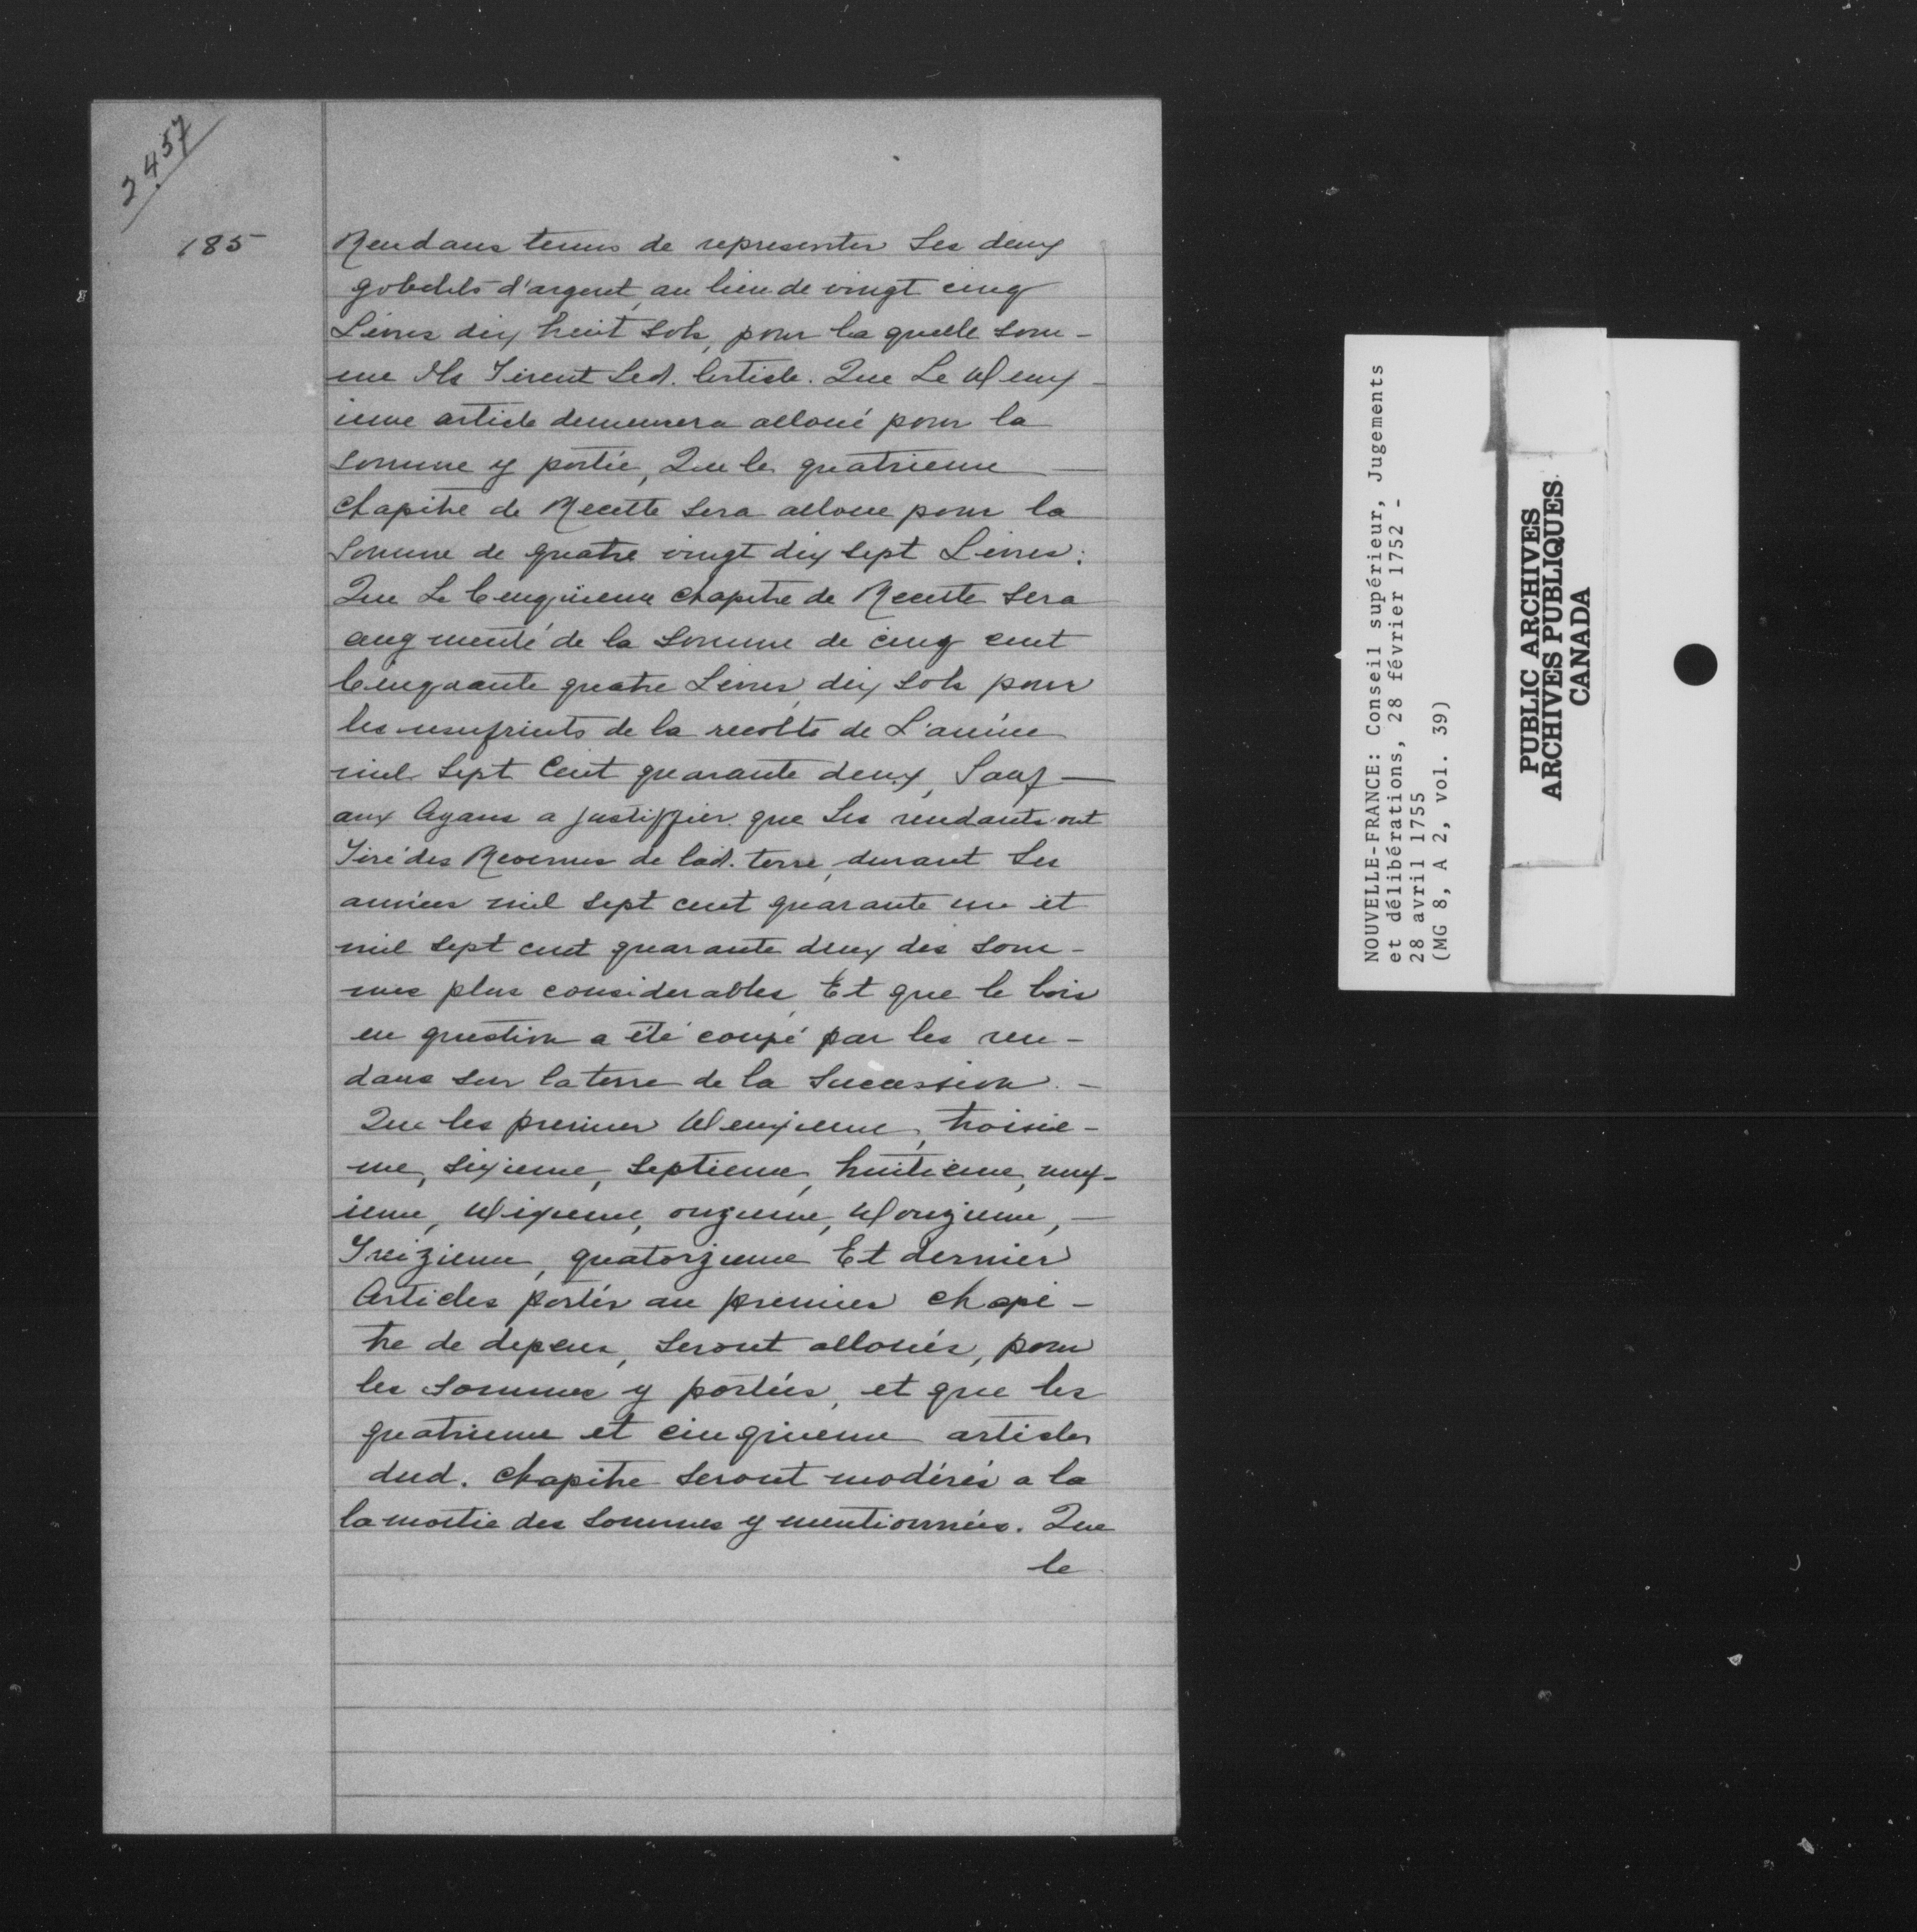 2457
185
Rendans tenus de representer Les deux
gobelets d'argent, au lieu de vingt cinq
Livres dix huit Sols, pour la quelle som-
me Ils Tirent Led. Article. Que Le Deux-
ieme article demeurera alloué pour la
Somme y portée, Que le quatrieme
chapitre de Recette Sera alloue pour la
Somme de quatre vingt dix sept Livres:
Que Le Cinquieme chapitre de Recette Sera
augmenté de la Somme de cinq cent
Cinquante quatre Livres, dix sols pour
les usufruits de la recolte de L'année
mil Sept Cent quarante deux, Sauf
aux Ayans a justiffier que Les rendants ont
Tiré des Revenus de lad. terre, durant Les
années mil sept cent quarante un et
mil sept cent quarante deux des som-
mes plus considerables, Et que le bois
en question a été coupé par les ren-
dans sur la terre de la Sucession.
Que les premier Deuxieme, troisie-
me, sixieme, septieme, huitieme, neuf-
ieme, Dixieme, onzieme, Douzieme,
Treizieme, quatorzieme Et dernier
Articles portés au premier chapi-
tre de depens, Seront alloués, pour
les Sommes y portées, et que les
quatrieme et cinquieme articles
dud. chapitre Seront modérés a la
la moitie des Sommes y mentionnées. Que
le
NOUVELLE-FRANCE: Conseil supérieur, Jugements
et délibérations, 28 février 1752 -
28 avril 1755
(MG 8, A 2, vol. 39)
PUBLIC ARCHIVES
ARCHIVES PUBLIQUES
CANADA